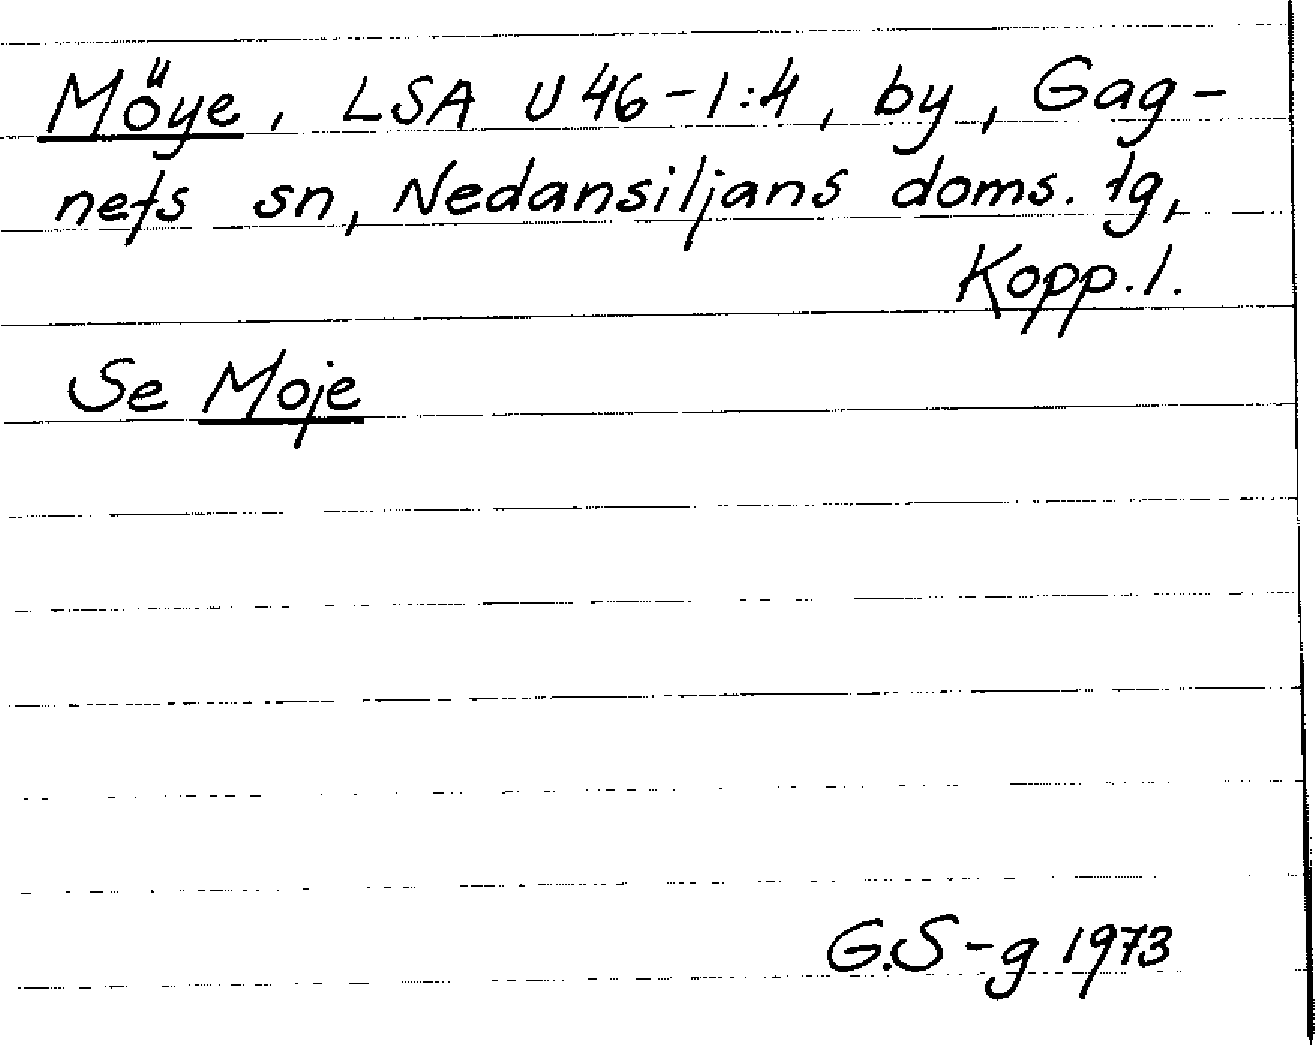 Möye, LSA U46-1:4, by, Gag-
nefs sn, Nedansiljans doms. tg,
Kopp.l.
Se Moje
G.S-g 1973